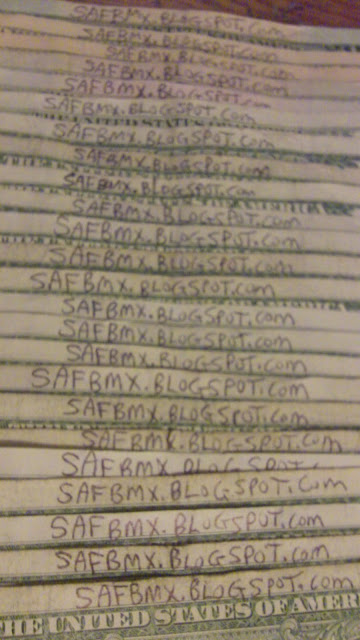 SAFBMX.BLOGSPOT.com
SAFBMX.BLOGSPOT.com
SAFBMX.BLOGSPOT.com
SAFBMX.BLOGSPOT.com
SAFBMX.BLOGSPOT.com
SAFBMX.BLOGSPOT.com
UNITED STATES
SAFBMX.BLOGSPOT.com
SAFBMX.BLOGSPOT.com
SAFBMX.BLOGSPOT.com
SAFBMX.BLOGSPOT.com
SAFBMX.BLOGSPOT.com
SAFBMX.BLOGSPOT.com
SAFBMX.BLOGSPOT.com
SAFBMX.BLOGSPOT.com
SAFBMX.BLOGSPOT.com
SAFBMX.BLOGSPOT.com
SAFBMX.BLOGSPOT.com
SAFBMX.BLOGSPOT.com
SAFBMX.BLOGSPOT.com
SAFBMX.BLOGSPOT.
SAFBMX.BLOGSPOT.com
SAFBMX.BLOGSPOT.com
SAFBMX.BLOGSPOT.com
SAFBMX.BLOGSPOT.com
HE UNITED STATES OF AMER